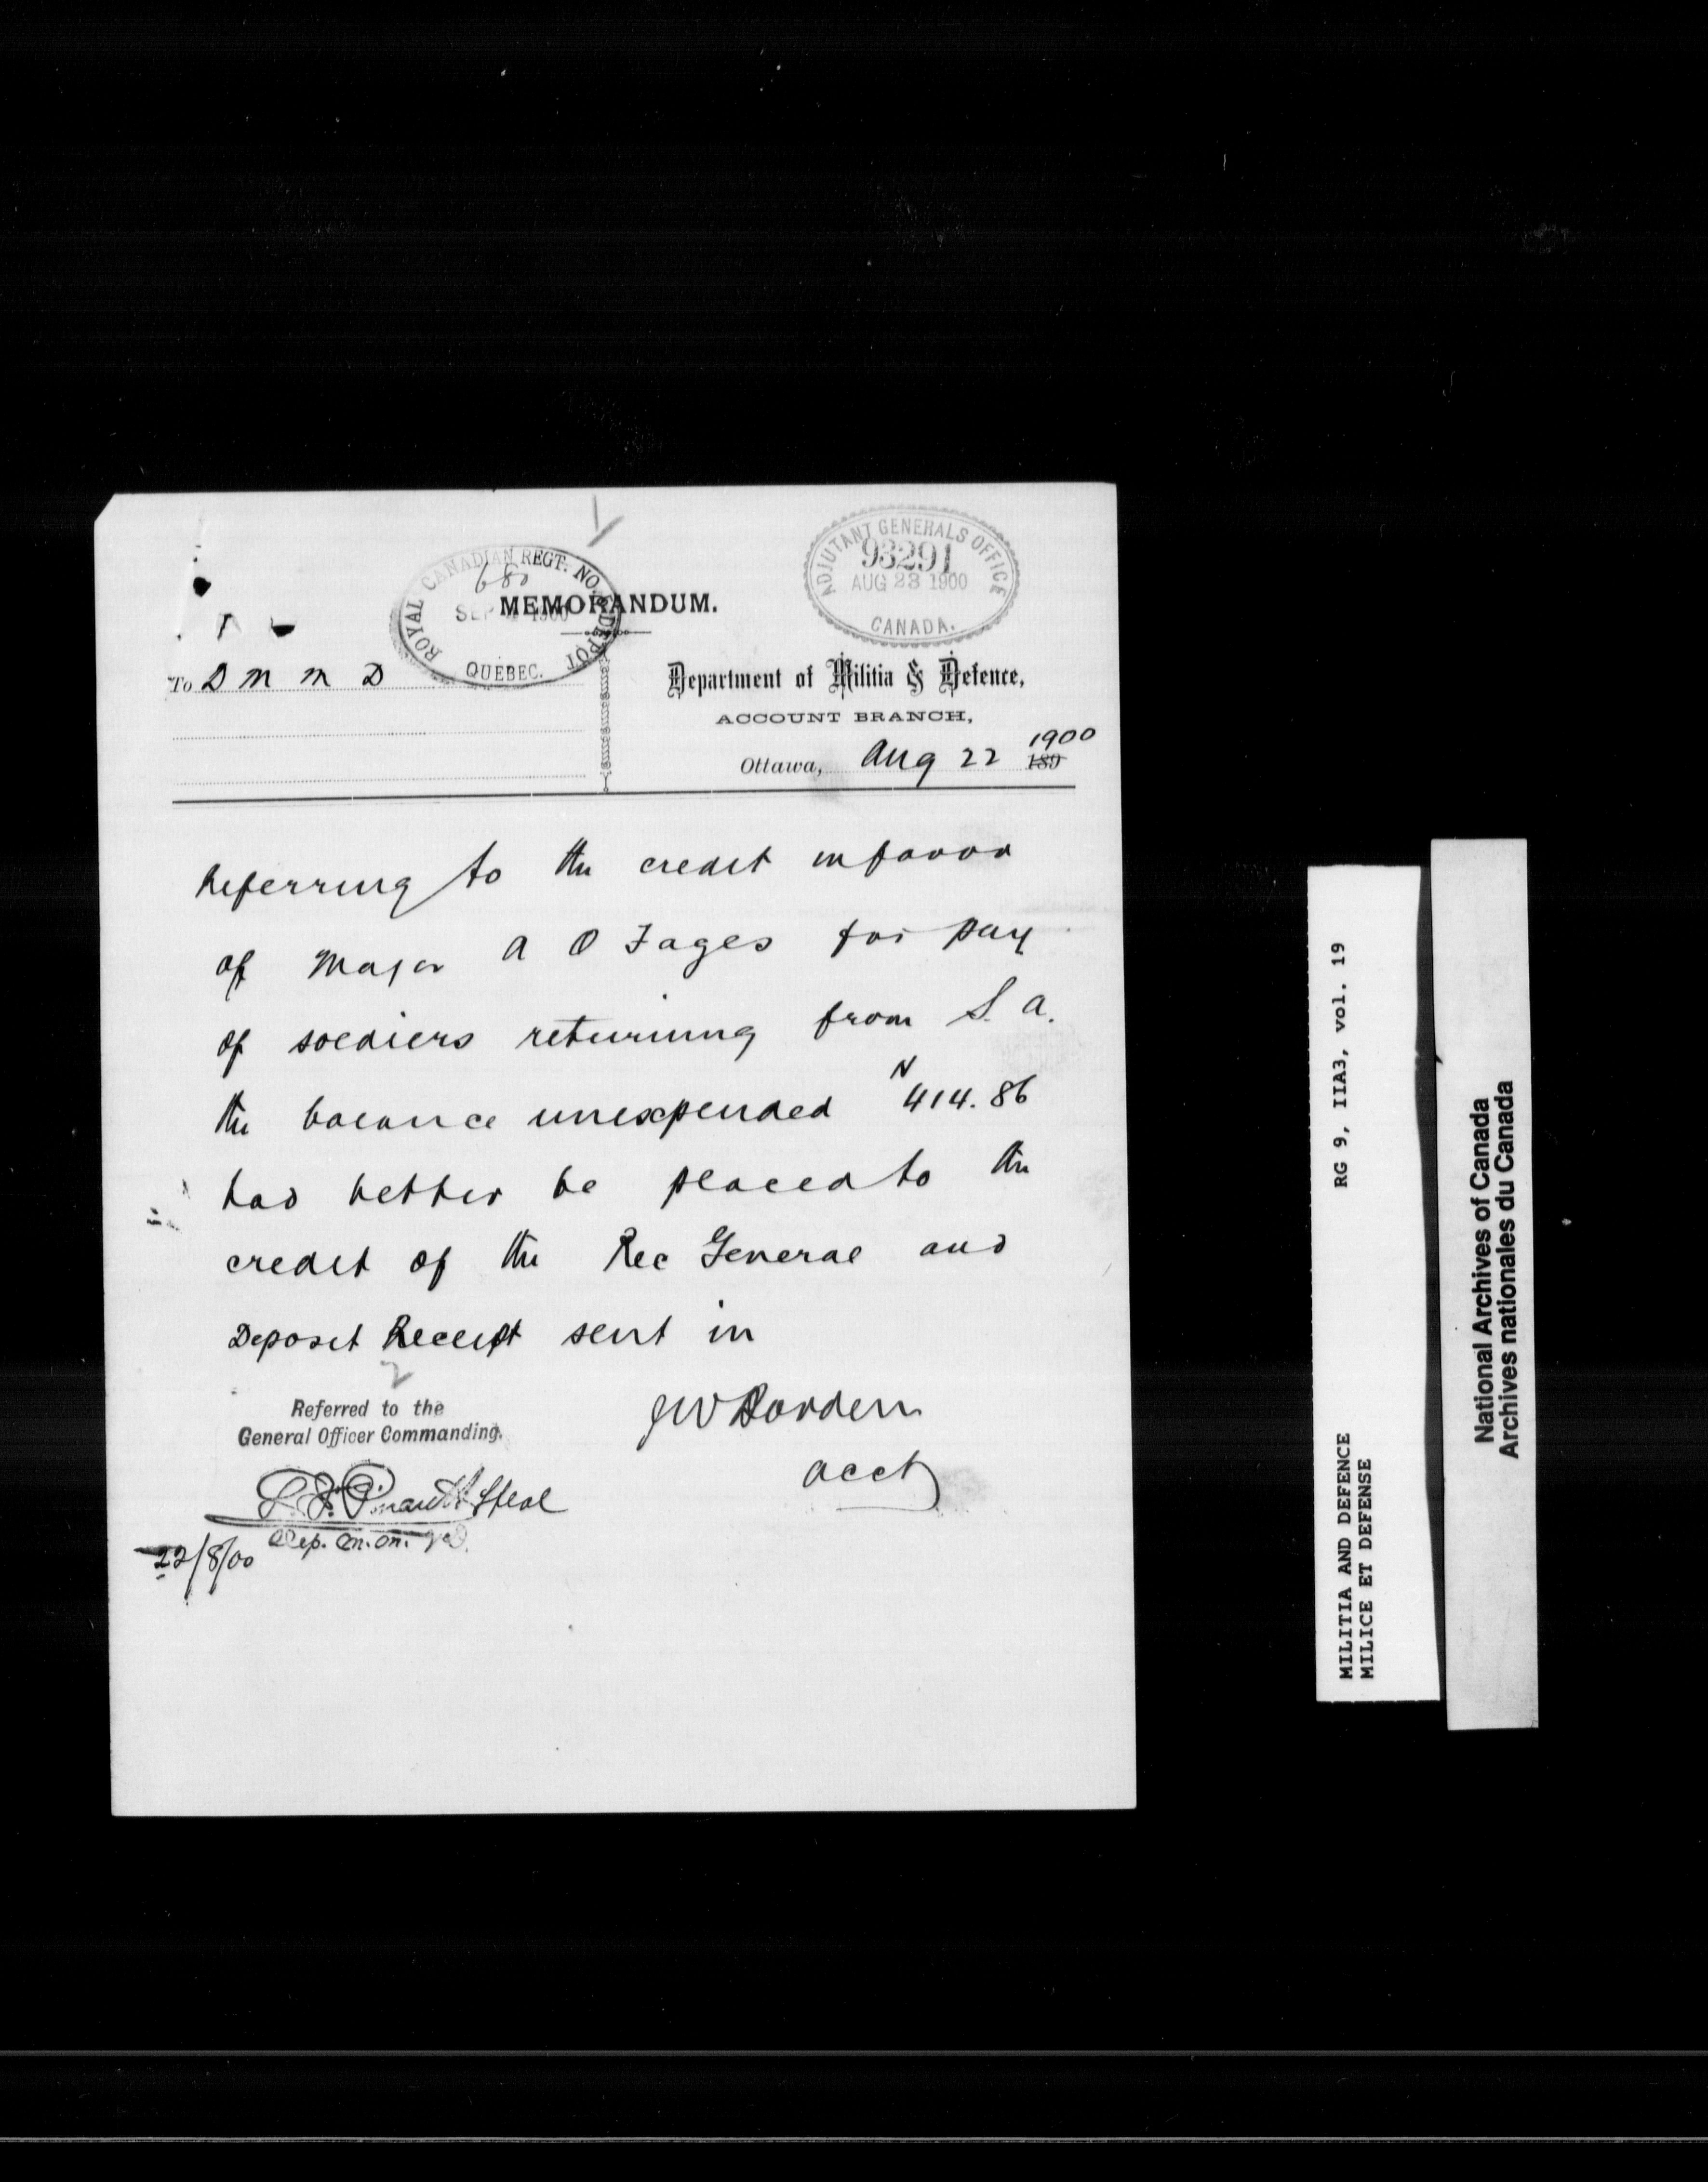 ROYAL CANADIAN REGT. NO. DEPOT
680
SEP 1900
QUEBEC.
ADJUTANT GENERALS OFFICE
93291
AUG 23 1900
CANADA.
MEMORANDUM.
To D M M D
Department of Militia & Defence,
ACCOUNT BRANCH,
Ottawa, Aug 22 1900
189
Referring to the credit in favor
of Major A O Fages for pay
of soldiers returning from S. A.
the balance unexpended 414.86
had better be placed to the
credit of the Rec General and
Deposit Receipt sent in
2
Referred to the
General Officer Commanding.
JW Borden
acct
Dep. M. M. & D.
22/8/00
RG 9, IIA3, vol. 19
MILITIA AND DEFENCE
MILICE ET DEFENSE
National Archives of Canada
Archives nationales du Canada